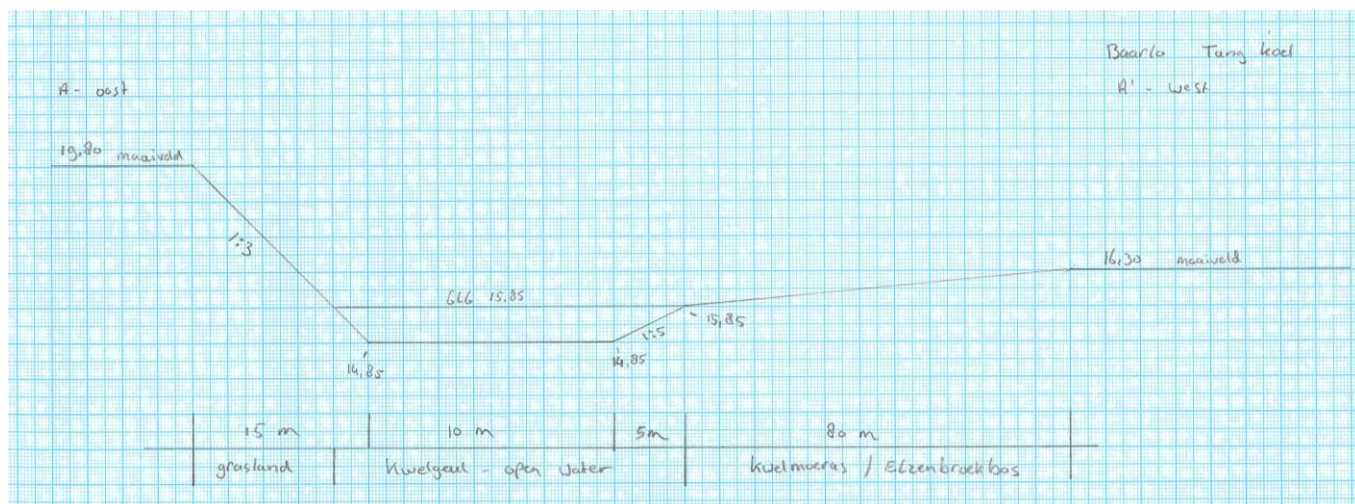 Baarlo Tangkoel
A - oost
A' - west
19,80 maaiveld
1:3
16,30 maaiveld
GLG 15,85
15,85
1:5
14,85
14,85
15 m
10 m
5m
80 m
grasland
Kwelgeul - open water
Kwelmoeras / Elzenbroekbos